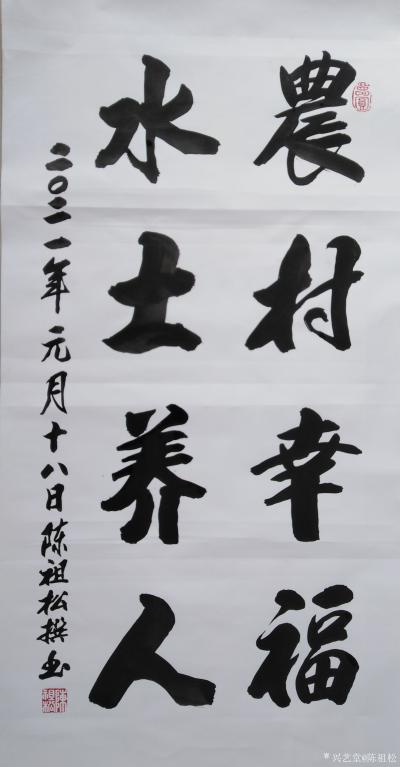 農村幸福
水土养人
二〇二一年元月十八日陈祖松撰书
陈祖松
兴艺堂@陈祖松